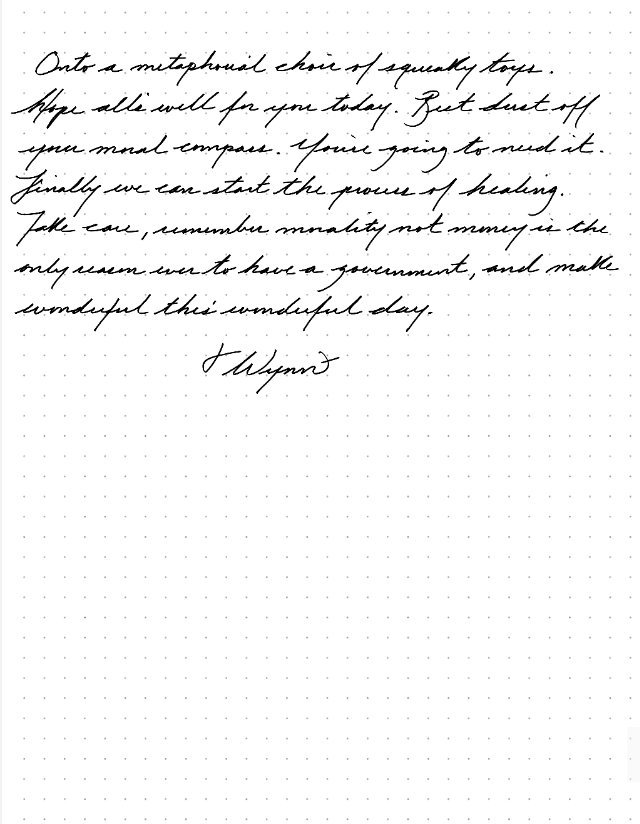 Onto a metaphorical choir of squeaky toys.
Hope all's well for you today. But dust off
your moral compass. You're going to need it.
Finally we can start the process of healing.
Take care, remember morality not money is the
only reason ever to have a government, and make
wonderful this wonderful day.
Wynn